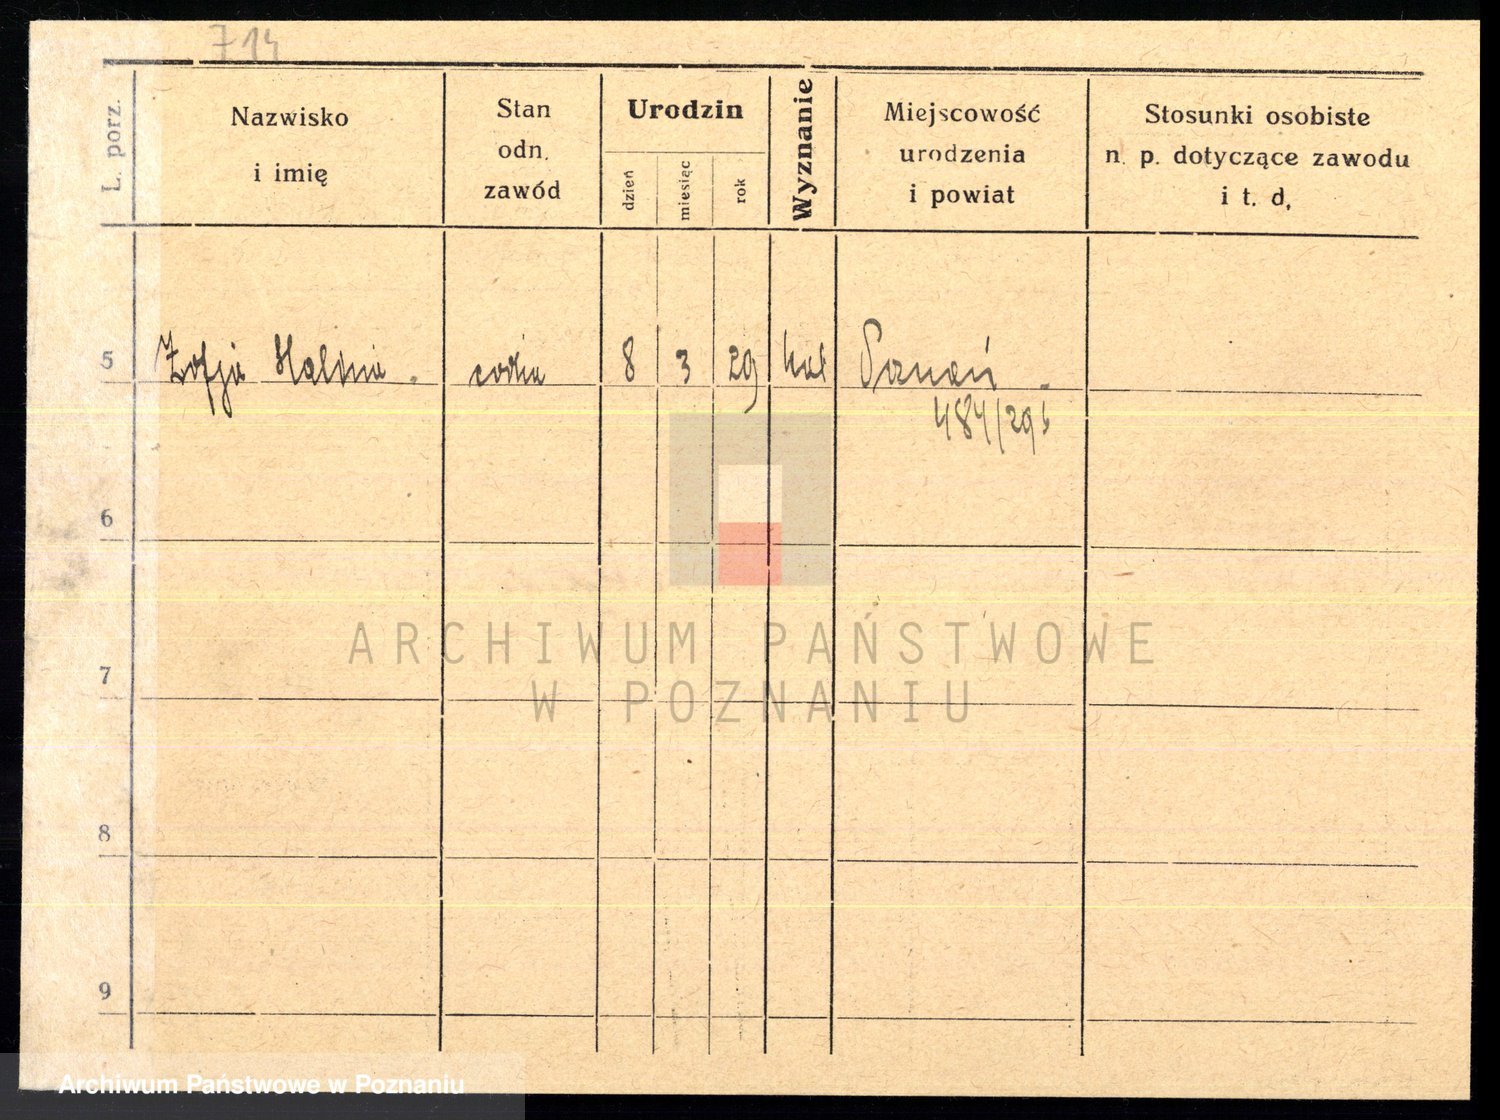 714
L. porz.
Nazwisko
i imię
Stan
odn.
zawód
Urodzin
dzień
miesiąc
rok
Wyznanie
Miejscowość
urodzenia
i powiat
Stosunki osobiste
n. p. dotyczące zawodu
i t. d.
5 Zofja Halina córka 8 3 29 kat Poznań
484/29
6
7
8
9
ARCHIWUM PAŃSTWOWE
W POZNANIU
Archiwum Państwowe w Poznaniu